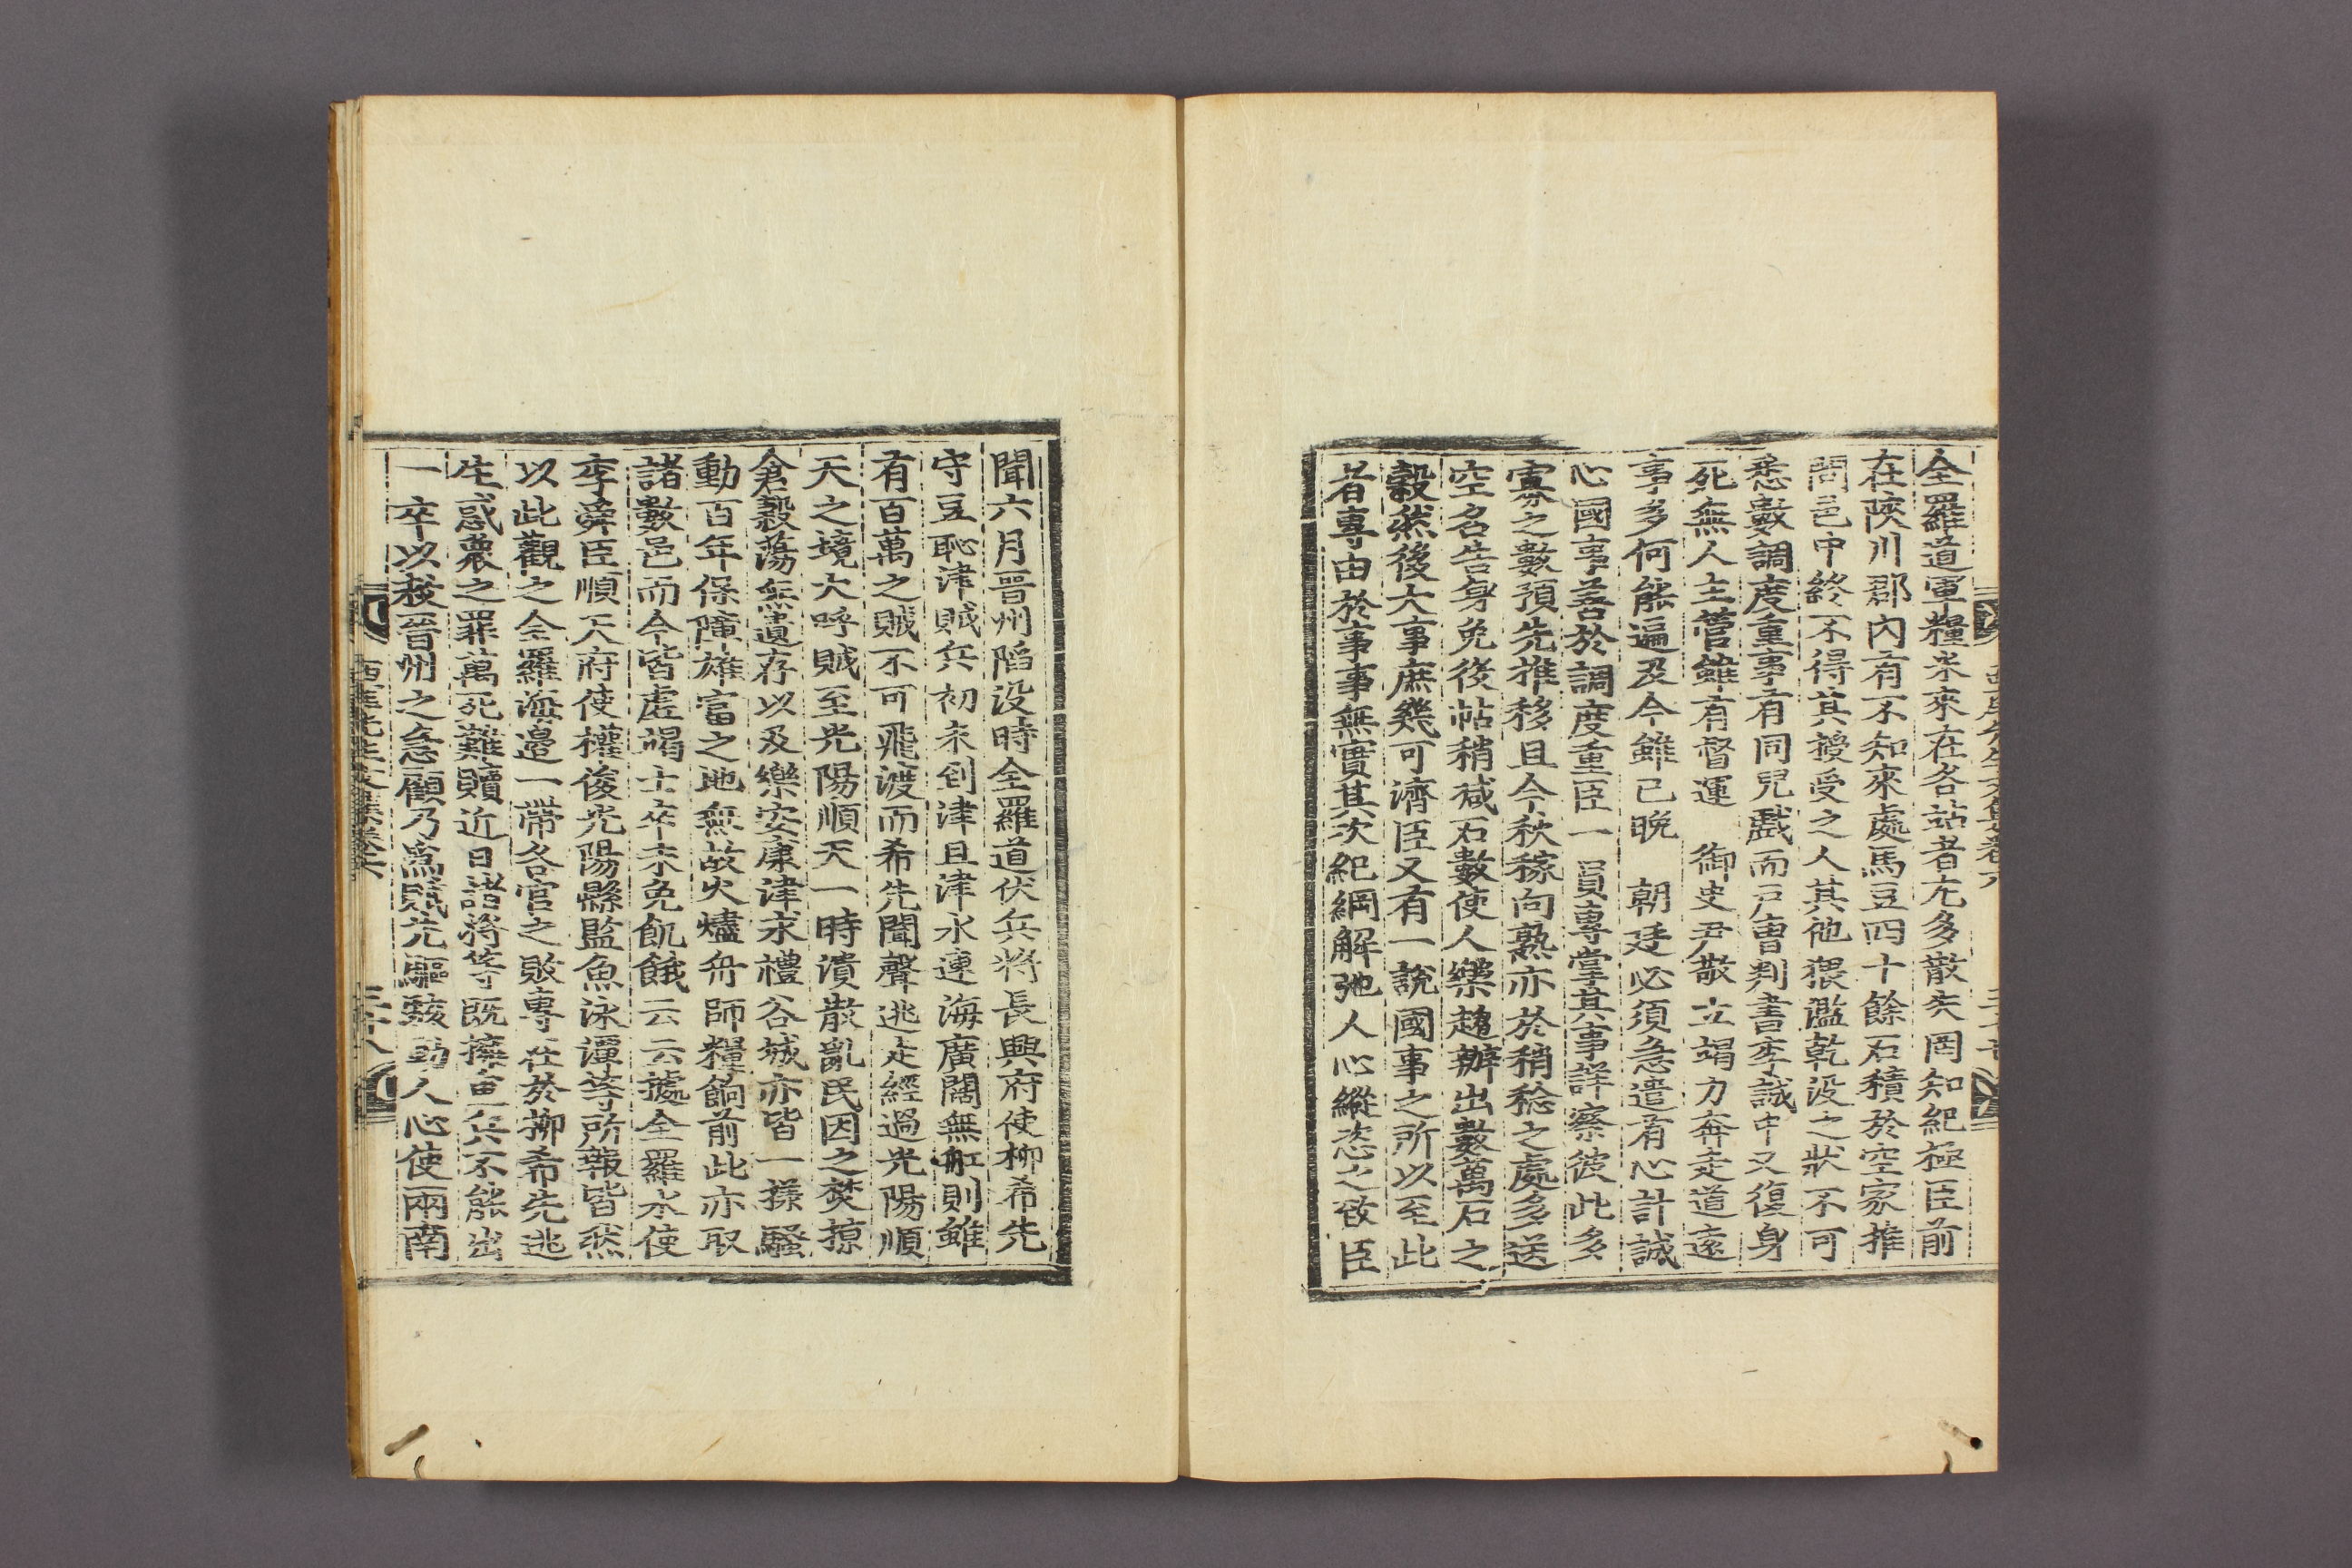 全羅道軍糧米來在各站者尤多散失罔知紀極臣前
在陜川郡內有不知來處馬豆四十餘石積於空家推
問邑中終不得其授受之人其他猥濫乾沒之狀不可
悉數調度重事有同兒戱而戶曹判書李誠中又復身
死無人主管雖有督運 御史尹敬立竭力奔走道遠
事多何能遍及今雖已晩 朝廷必須急遣有心計誠
心國事善於調度重臣一員專掌其事詳察彼此多
寡之數預先推移且今秋稼向熟亦於稍稔之處多送
空名告身免後帖稍減石數使人樂趨辦出數萬石之
穀然後大事庶幾可濟臣又有一說國事之所以至此
者專由於事事無實其次紀綱解弛人心縱恣之致臣
聞六月晋州陷沒時全羅道伏兵將長興府使柳希先
守豆恥津賊兵初未到津且津水連海廣闊無舡則雖
有百萬之賊不可飛渡而希先聞聲逃走經過光陽順
天之境大呼賊至光陽順天一時潰散亂民因之焚掠
倉穀蕩無遺存以及樂安康津求禮谷城亦皆一樣騷
動百年保障雄富之地無故火燼舟師糧餉前此亦取
諸數邑而今皆虛竭士卒未免飢餓云云據全羅水使
李舜臣順天府使權俊光陽縣監魚泳潭等所報皆然
以此觀之全羅海邊一帶各官之敗專在於柳希先逃
生惑衆之罪萬死難贖近日諸將等旣擁重兵不能出
一卒以救晋州之急顧乃爲賊先驅駭動人心使兩南
西厓先生文集卷六